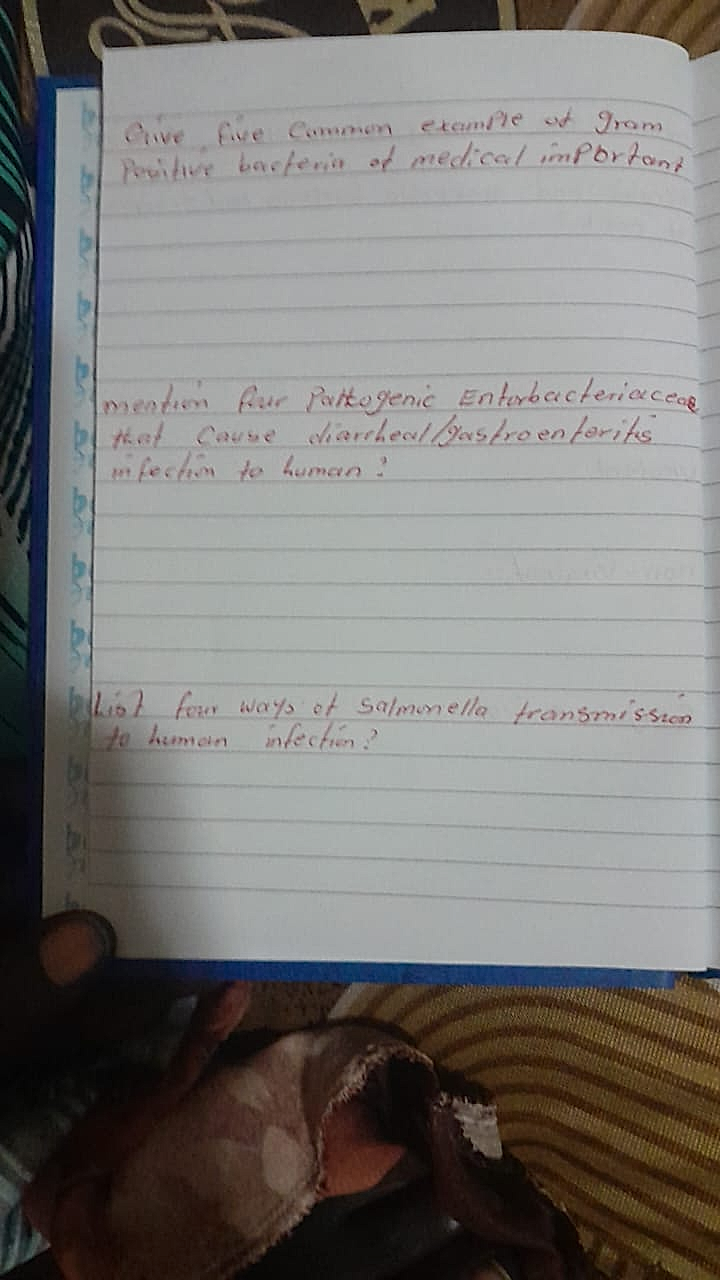 Give five Common example of gram
Positive bacteria of medical important
mention four Pathogenic Enterbacteriaceae
that cause diarrheal/gastroenteritis
infection to human?
List four ways of Salmonella transmission
to human infection?